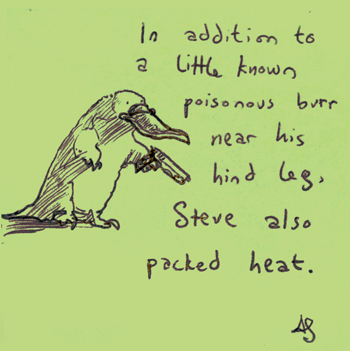 In addition to
a little known
poisonous burr
near his
hind leg,
Steve also
packed heat.